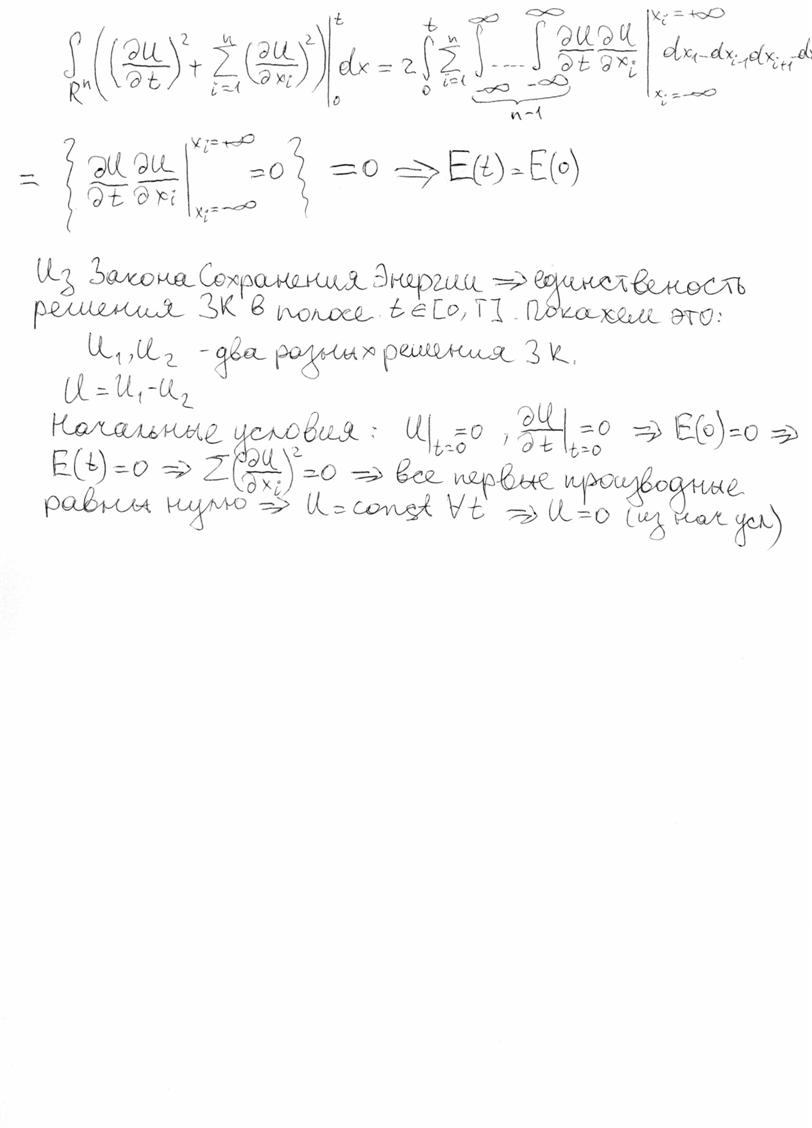 ∫_{Rⁿ} ((∂U/∂t)² + Σ_{i=1}^{n} (∂U/∂xᵢ)²)|₀ᵗ dx = 2 ∫₀ᵗ Σ_{i=1}^{n} ∫_{-∞}^{∞} ..... ∫_{-∞}^{∞} (n-1) ∂U/∂t ∂U/∂xᵢ |_{xᵢ=-∞}^{xᵢ=+∞} dx₁-dxᵢ₋₁dxᵢ₊₁-d
= { ∂U/∂t ∂U/∂xᵢ |_{xᵢ=-∞}^{xᵢ=+∞} = 0 } = 0 ⇒ E(t) = E(0)
Из Закона Сохранения Энергии ⇒ единственость
решения ЗК в полосе t∈[0,T]. Покажем это:
U₁, U₂ - два разных решения ЗК.
U = U₁ - U₂
Начальные условия: U|_{t=0} = 0, ∂U/∂t|_{t=0} = 0 ⇒ E(0) = 0 ⇒
E(t) = 0 ⇒ Σ(∂U/∂xᵢ)² = 0 ⇒ все первые производные
равны нулю ⇒ U = const ∀t ⇒ U = 0 (из нач усл)